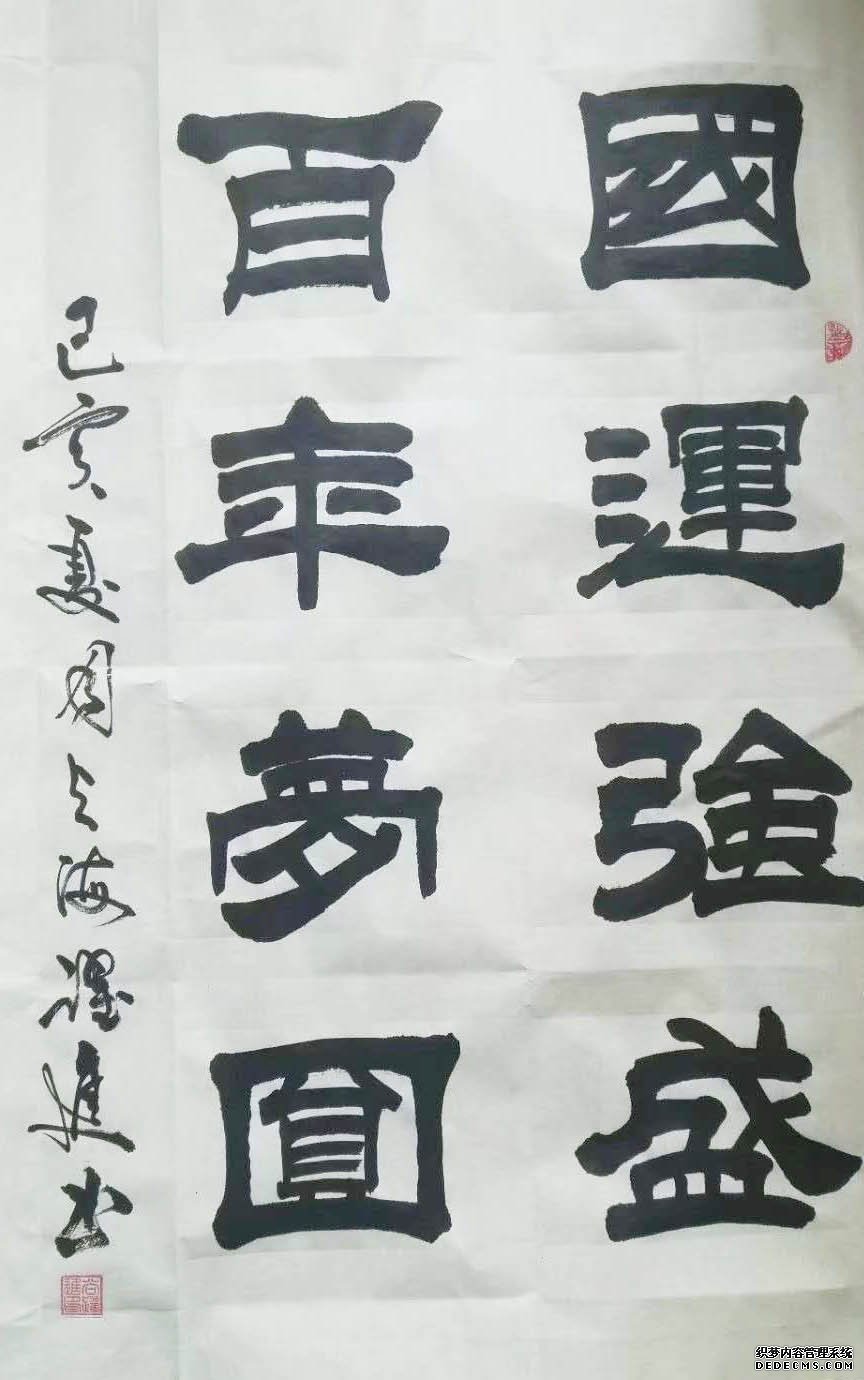 國運強盛
百年夢圓
己亥夏月上海躍進书
织梦内容管理系统
DEDECMS.COM